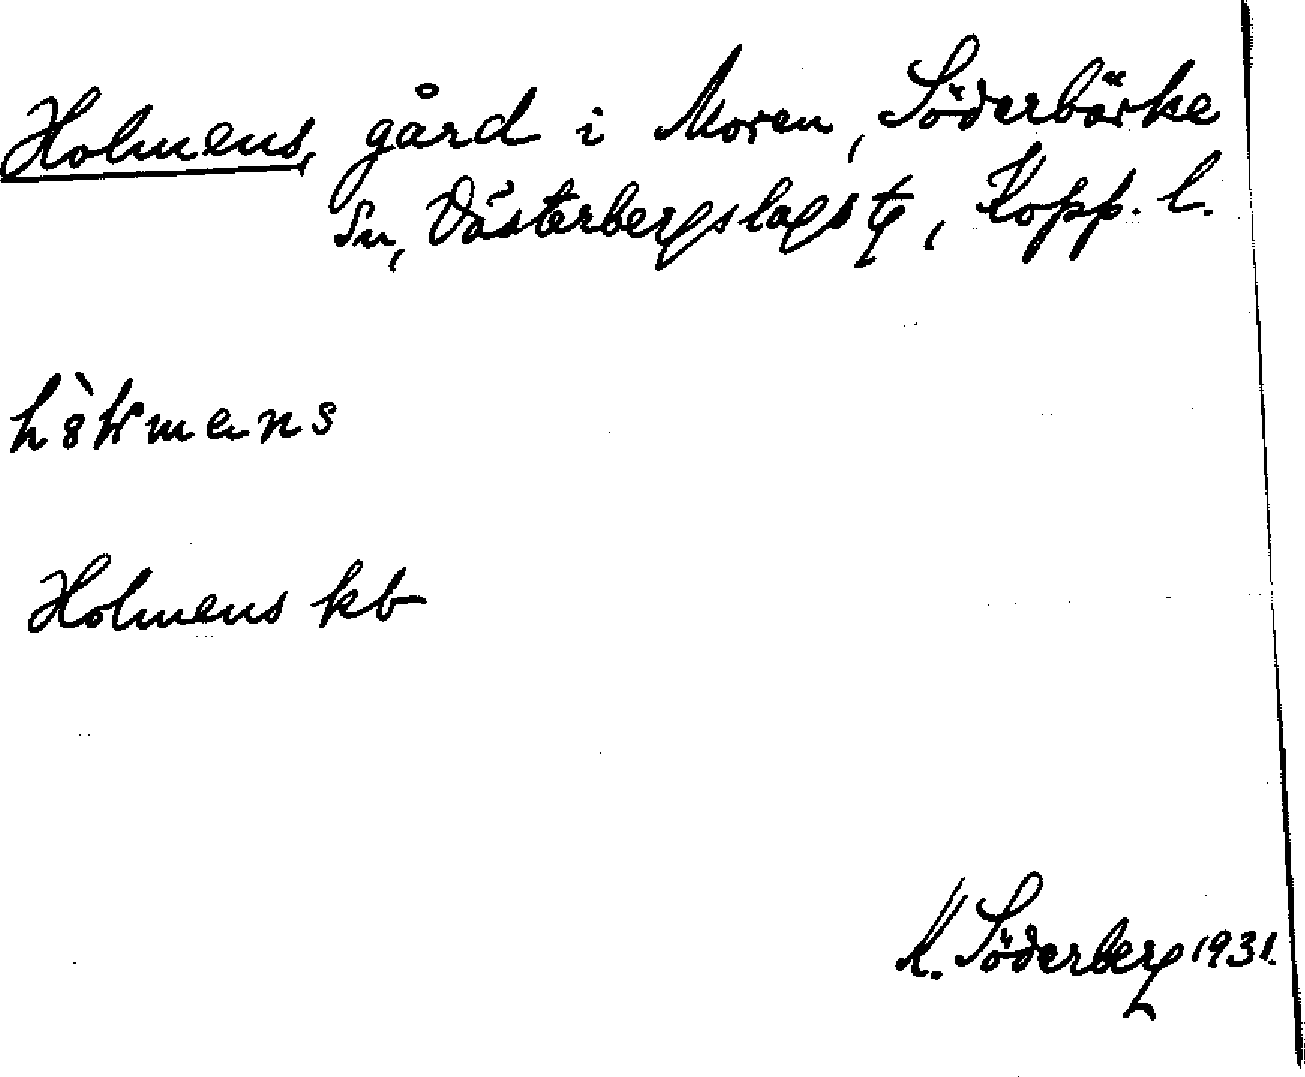 Holmens, gård i Moren, Söderbärke
Sn, Västerbergslags tg, Kopp. l.
Holmens kb
K. Söderberg 1931.